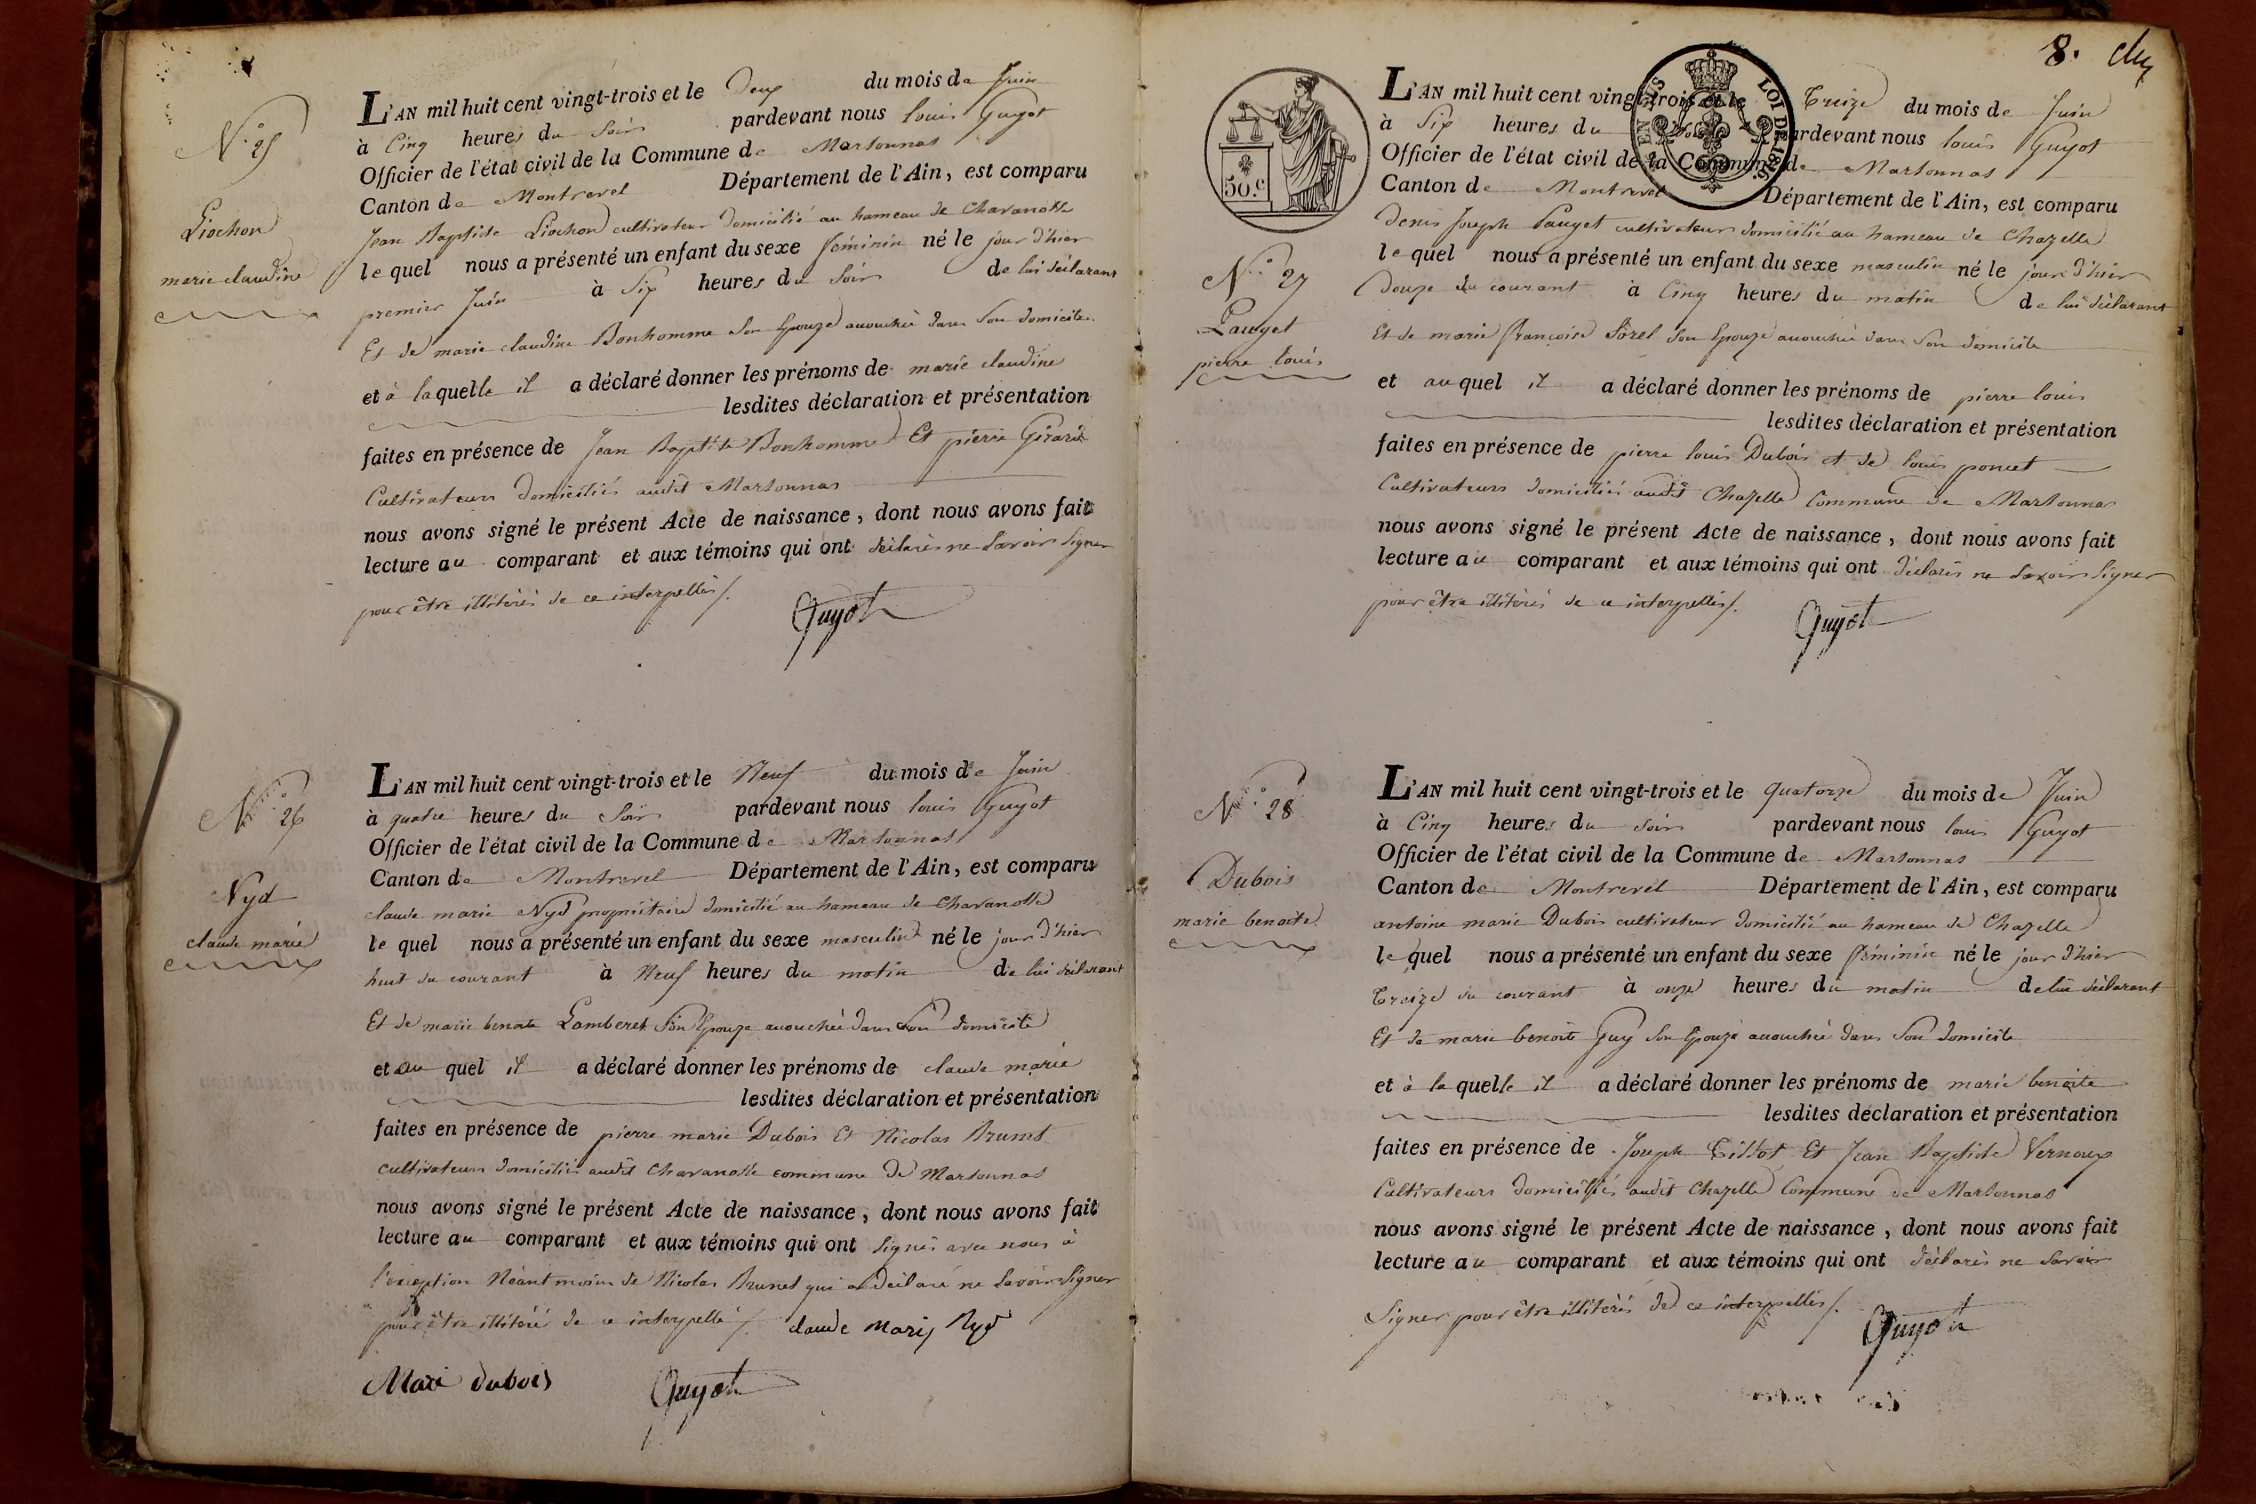 N.° 25
Liochon
marie claudine
L'AN mil huit cent vingt-trois et le Deux du mois de Juin
à Cinq heures du Soir pardevant nous louis Guyot
Officier de l'état civil de la Commune de Marsonnas
Canton de Montrevel Département de l'Ain, est comparu
Jean Baptiste Liochon cultivateur domicilié au hameau de Chavanosse
lequel nous a présenté un enfant du sexe féminin né le jour d'hier
premier Juin à Six heures du Soir de lui déclarant
Et de marie claudine Bonhomme Son Epouze accouchée dans Son domicile
et à laquelle il a déclaré donner les prénoms de marie claudine
lesdites déclaration et présentation
faites en présence de Jean Baptiste Bonhomme Et pierre Girard
Cultivateurs domiciliés audit Marsonnas
nous avons signé le présent Acte de naissance, dont nous avons fait
lecture au comparant et aux témoins qui ont déclarés ne Savoir Signer
pour être illitérés de ce interpellés /.
Guyot
N.° 26
Nyd
claude marie
L'AN mil huit cent vingt-trois et le Neuf du mois de Juin
à quatre heures du Soir pardevant nous louis Guyot
Officier de l'état civil de la Commune de Marsonnas
Canton de Montrevel Département de l'Ain, est comparu
claude marie Nyd propriétaire domicilié au hameau de Chavanosse
lequel nous a présenté un enfant du sexe masculin né le jour d'hier
huit du courant à Neuf heures du matin de lui déclarant
Et de marie benoite Lamberet Son Epouze accouchée dans Son domicile
et au quel il a déclaré donner les prénoms de claude marie
lesdites déclaration et présentation
faites en présence de pierre marie Dubois Et Nicolas Brunet
cultivateurs domiciliés audit Chavanosse commune de Marsonnas
nous avons signé le présent Acte de naissance, dont nous avons fait
lecture au comparant et aux témoins qui ont Signés avec nous à
l'exception Néantmoins de Nicolas Brunet qui a déclaré ne Savoir Signer
pour être illitéré de ce interpellé /. claude Marij Nyd
Mari dubois Guyot
8.
50.c
EN SUS LOI DE 1816
N.° 27
Pauget
pierre louis
L'AN mil huit cent vingt-trois et le Treize du mois de Juin
à Six heures du pardevant nous louis Guyot
Officier de l'état civil de la Commune de Marsonnas
Canton de Montrevel Département de l'Ain, est comparu
Denis Joseph Pauget cultivateur domicilié au hameau de Chazelle
lequel nous a présenté un enfant du sexe masculin né le jour d'hier
Douze du courant à Cinq heures du matin de lui déclarant
Et de marie françoise Sorel Son Epouze accouchée dans Son domicile
et auquel il a déclaré donner les prénoms de pierre louis
lesdites déclaration et présentation
faites en présence de pierre louis Dubois et de louis poncet
Cultivateurs domiciliés audit Chazelle Commune de Marsonnas
nous avons signé le présent Acte de naissance, dont nous avons fait
lecture au comparant et aux témoins qui ont déclarés ne Savoir Signer
pour être illitérés de ce interpellés /.
Guyot
N.° 28
Dubois
marie benoite
L'AN mil huit cent vingt-trois et le quatorze du mois de Juin
à Cinq heures du Soir pardevant nous louis Guyot
Officier de l'état civil de la Commune de Marsonnas
Canton de Montrevel Département de l'Ain, est comparu
antoine marie Dubois cultivateur domicilié au hameau de Chazelle
lequel nous a présenté un enfant du sexe féminin né le jour d'hier
Treize du courant à onze heures du matin de lui déclarant
Et de marie benoite Guy Son Epouze accouchée dans Son domicile
et à laquelle il a déclaré donner les prénoms de marie benoite
lesdites déclaration et présentation
faites en présence de Joseph Tissot Et Jean Baptiste Vernoux
Cultivateurs domiciliés audit Chazelle Commune de Marsonnas
nous avons signé le présent Acte de naissance, dont nous avons fait
lecture au comparant et aux témoins qui ont déclarés ne Savoir
Signer pour être illitérés de ce interpellés /.
Guyot